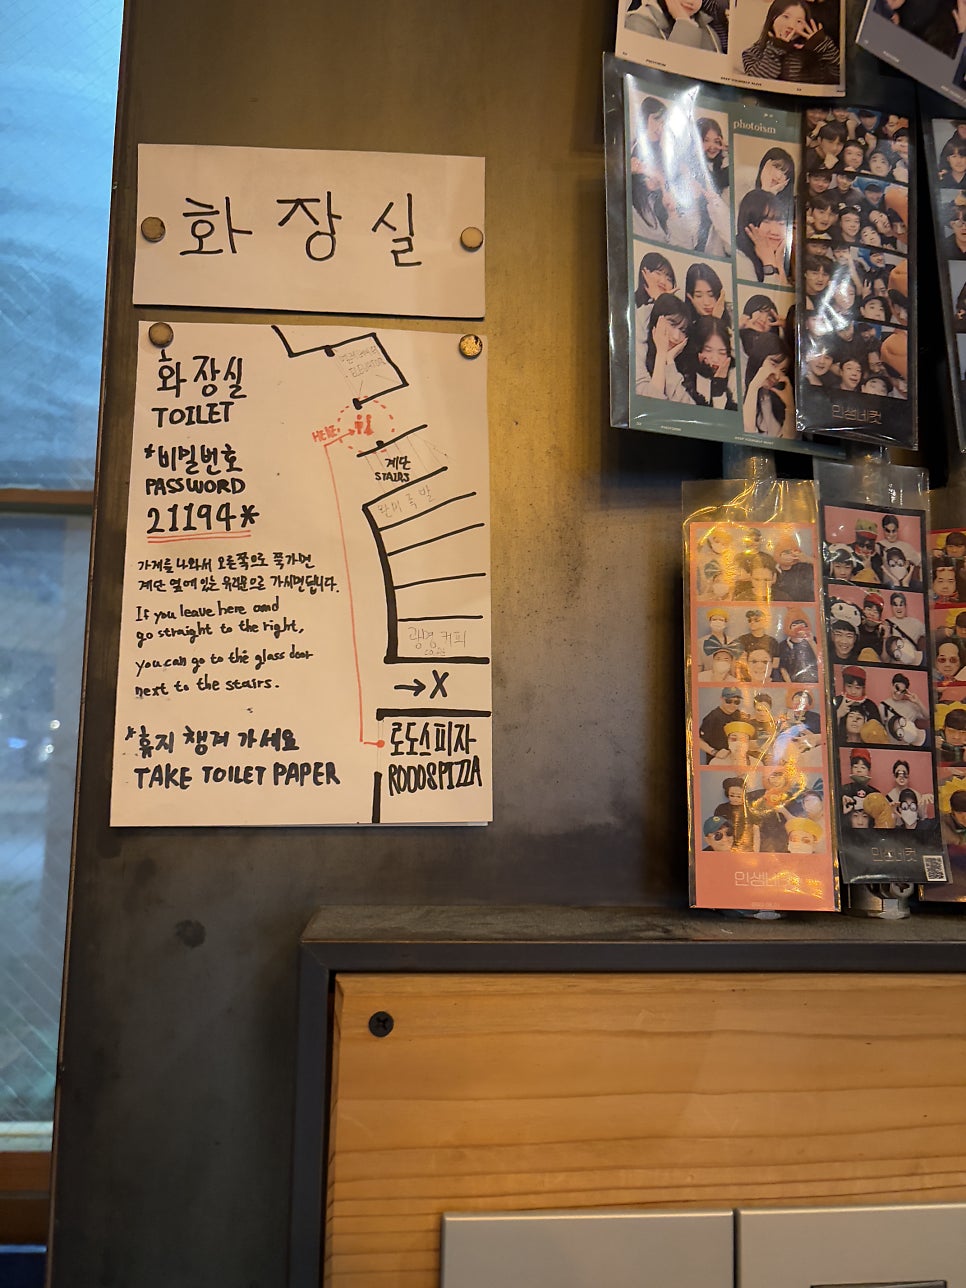 화장실
화장실
TOILET
*비밀번호
PASSWORD
21194*
가게를 나와서 오른쪽으로 쭉가면
계단 옆에 있는 유리문으로 가시면됩니다.
If you leave here and
go straight to the right,
you can go to the glass door
next to the stairs.
*휴지 챙겨 가세요
TAKE TOILET PAPER
ELEVATOR
HERE
계단
STAIRS
완치족발
광명커피
→X
로도스피자
RODOSPIZZA
photoism
인생네컷
인생네컷
인생네컷